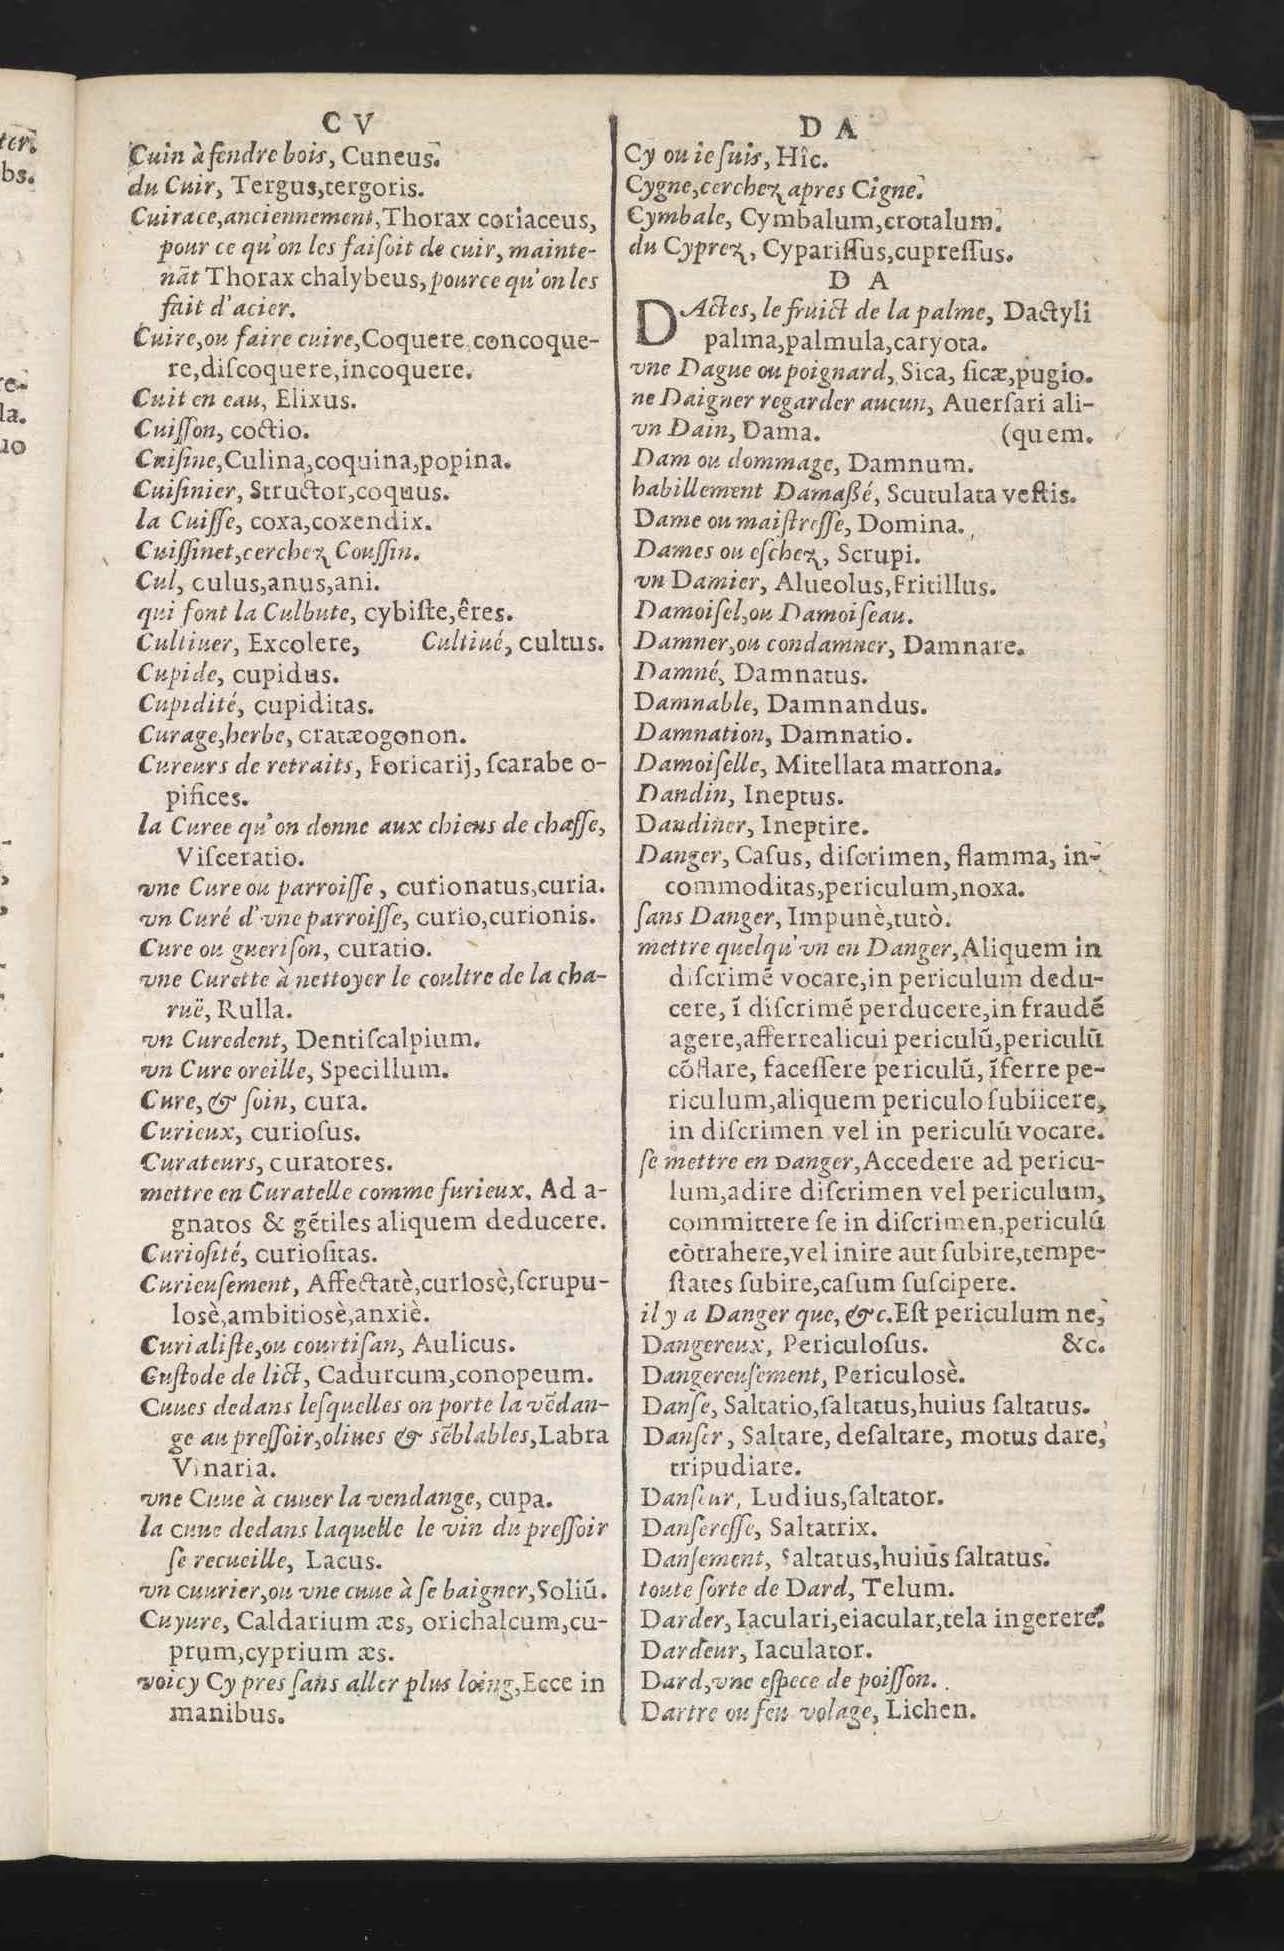 C V
Cuin à fendre bois, Cuneus.
du Cuir, Tergus,tergoris.
Cuirace,anciennement,Thorax coriaceus,
pour ce qu'on les faiſoit de cuir, mainte-
nãt Thorax chalybeus, pource qu'on les
fait d'acier.
Cuire,ou faire cuire,Coquere,concoque-
re,diſcoquere,incoquere.
Cuit en eau, Elixus.
Cuiſſon, coctio.
Cuiſine,Culina,coquina,popina.
Cuiſinier, Structor,coquus.
la Cuiſſe, coxa,coxendix.
Cuiſſinet,cerchez Couſſin.
Cul, culus,anus,ani.
qui font la Culbute, cybiſte,êres.
Cultiuer, Excolere, Cultiué, cultus.
Cupide, cupidus.
Cupidité, cupiditas.
Curage,herbe, cratæogonon.
Cureurs de retraits, Foricarij, ſcarabe o-
pifices.
la Curee qu'on donne aux chiens de chaſſe,
Viſceratio.
vne Cure ou parroiſſe, curionatus,curia.
vn Curé d'vne parroiſſe, curio,curionis.
Cure ou gueriſon, curatio.
vne Curette à nettoyer le coultre de la cha-
ruë, Rulla.
vn Curedent, Dentiſcalpium.
vn Cure oreille, Specillum.
Cure, & ſoin, cura.
Curieux, curioſus.
Curateurs, curatores.
mettre en Curatelle comme furieux, Ad a-
gnatos & gẽtiles aliquem deducere.
Curioſité, curioſitas.
Curieuſement, Affectatè,curiosè,ſcrupu-
losè,ambitiosè,anxiè.
Curialiſte,ou courtiſan, Aulicus.
Cuſtode de lict, Cadurcum,conopeum.
Cuues dedans leſquelles on porte la vẽdan-
ge au preſſoir,oliues & sẽblables,Labra
Vinaria.
vne Cuue à cuuer la vendange, cupa.
la cuue dedans laquelle le vin du preſſoir
ſe recueille, Lacus.
vn cuurier,ou vne cuue à ſe baigner,Soliũ.
Cuyure, Caldarium æs, orichalcum,cu-
prum,cyprium æs.
voicy Cy pres ſans aller plus loing,Ecce in
manibus.
D A
Cy ou ie ſuis, Hîc.
Cygne,cerchez apres Cigne.
Cymbale, Cymbalum,crotalum.
du Cyprez, Cypariſſus,cupreſſus.
D A
DActes, le fruict de la palme, Dactyli
palma,palmula,caryota.
vne Dague ou poignard, Sica, ſicæ,pugio.
ne Daigner regarder aucun, Auerſari ali-
vn Dain, Dama. (quem.
Dam ou dommage, Damnum.
habillement Damaßé, Scutulata veſtis.
Dame ou maiſtreſſe, Domina.
Dames ou eſchez, Scrupi.
vn Damier, Alueolus,Fritillus.
Damoiſel,ou Damoiſeau.
Damner,ou condamner, Damnare.
Damné, Damnatus.
Damnable, Damnandus.
Damnation, Damnatio.
Damoiſelle, Mitellata matrona.
Dandin, Ineptus.
Dandiner, Ineptire.
Danger, Caſus, diſcrimen, flamma, in-
commoditas,periculum,noxa.
ſans Danger, Impunè,tutò.
mettre quelqu'vn en Danger,Aliquem in
diſcrimẽ vocare,in periculum dedu-
cere, ĩ diſcrimẽ perducere,in fraudẽ
agere,afferrealicui periculũ,periculũ
cõflare, faceſſere periculũ, ĩferre pe-
riculum,aliquem periculo ſubiicere,
in diſcrimen vel in periculũ vocare.
ſe mettre en Danger,Accedere ad pericu-
lum,adire diſcrimen vel periculum,
committere ſe in diſcrimen,periculũ
cõtrahere,vel inire aut ſubire,tempe-
ſtates ſubire,caſum ſuſcipere.
il y a Danger que, &c.Eſt periculum ne,
Dangereux, Periculoſus. &c.
Dangereuſement, Periculosè.
Danſe, Saltatio,ſaltatus,huius ſaltatus.
Danſer, Saltare, deſaltare, motus dare,
tripudiare.
Danſeur, Ludius,ſaltator.
Danſereſſe, Saltatrix.
Danſement, Saltatus,huius ſaltatus.
toute ſorte de Dard, Telum.
Darder, Iaculari,eiacular,tela ingerere.
Dardeur, Iaculator.
Dard,vne eſpece de poiſſon.
Dartre ou feu volage, Lichen.